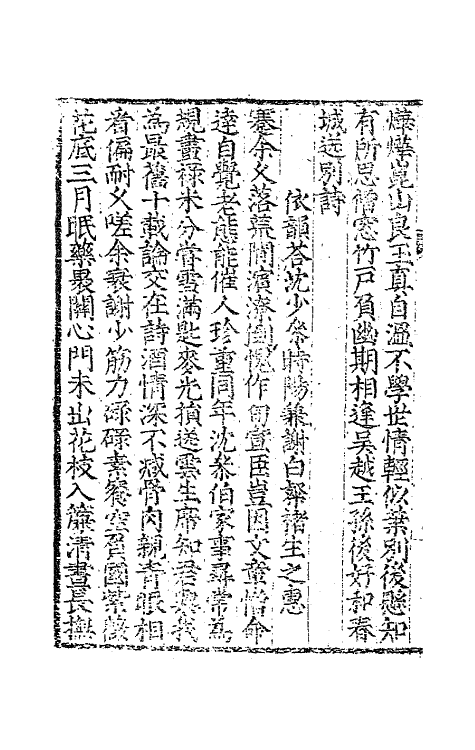 燁燁崑山良玉真自溫不學世情輕似葉別後懸知
有所思僧窓竹戸負幽期相逢吳越王孫後好和春
城送別詩
依韻答沈少叅時暘兼謝白粲楮生之惠
蹇余久落荒閒濱潦倒愧作旬宣臣豈因文章憎命
達自覺老態能催人珍重同年沈叅伯家事尋常為
規畫祿米分嘗雪滿匙麥光損送雲生席知君與我
為最舊十載論交在詩酒情深不減骨肉親青眼相
看偏耐久嗟余衰謝少筋力碌碌素餐空負國紫薇
花底三月眠藥裹關心門未出花枝入簾清晝長撫